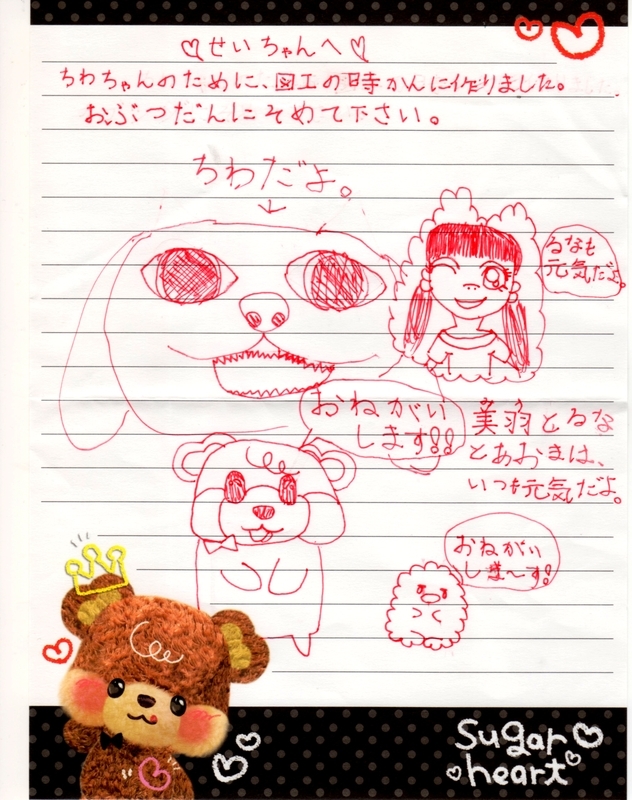 ♡せいちゃんへ♡
ちわちゃんのために、図工の時かんに作りました。
おぶつだんにそめて下さい。
ちわだよ。
るなも
元気だよ。
おねがい
します!!
みう
美羽とるな
とあおまは、
いつも元気だよ。
おねがい
しま〜す!
Sugar
heart